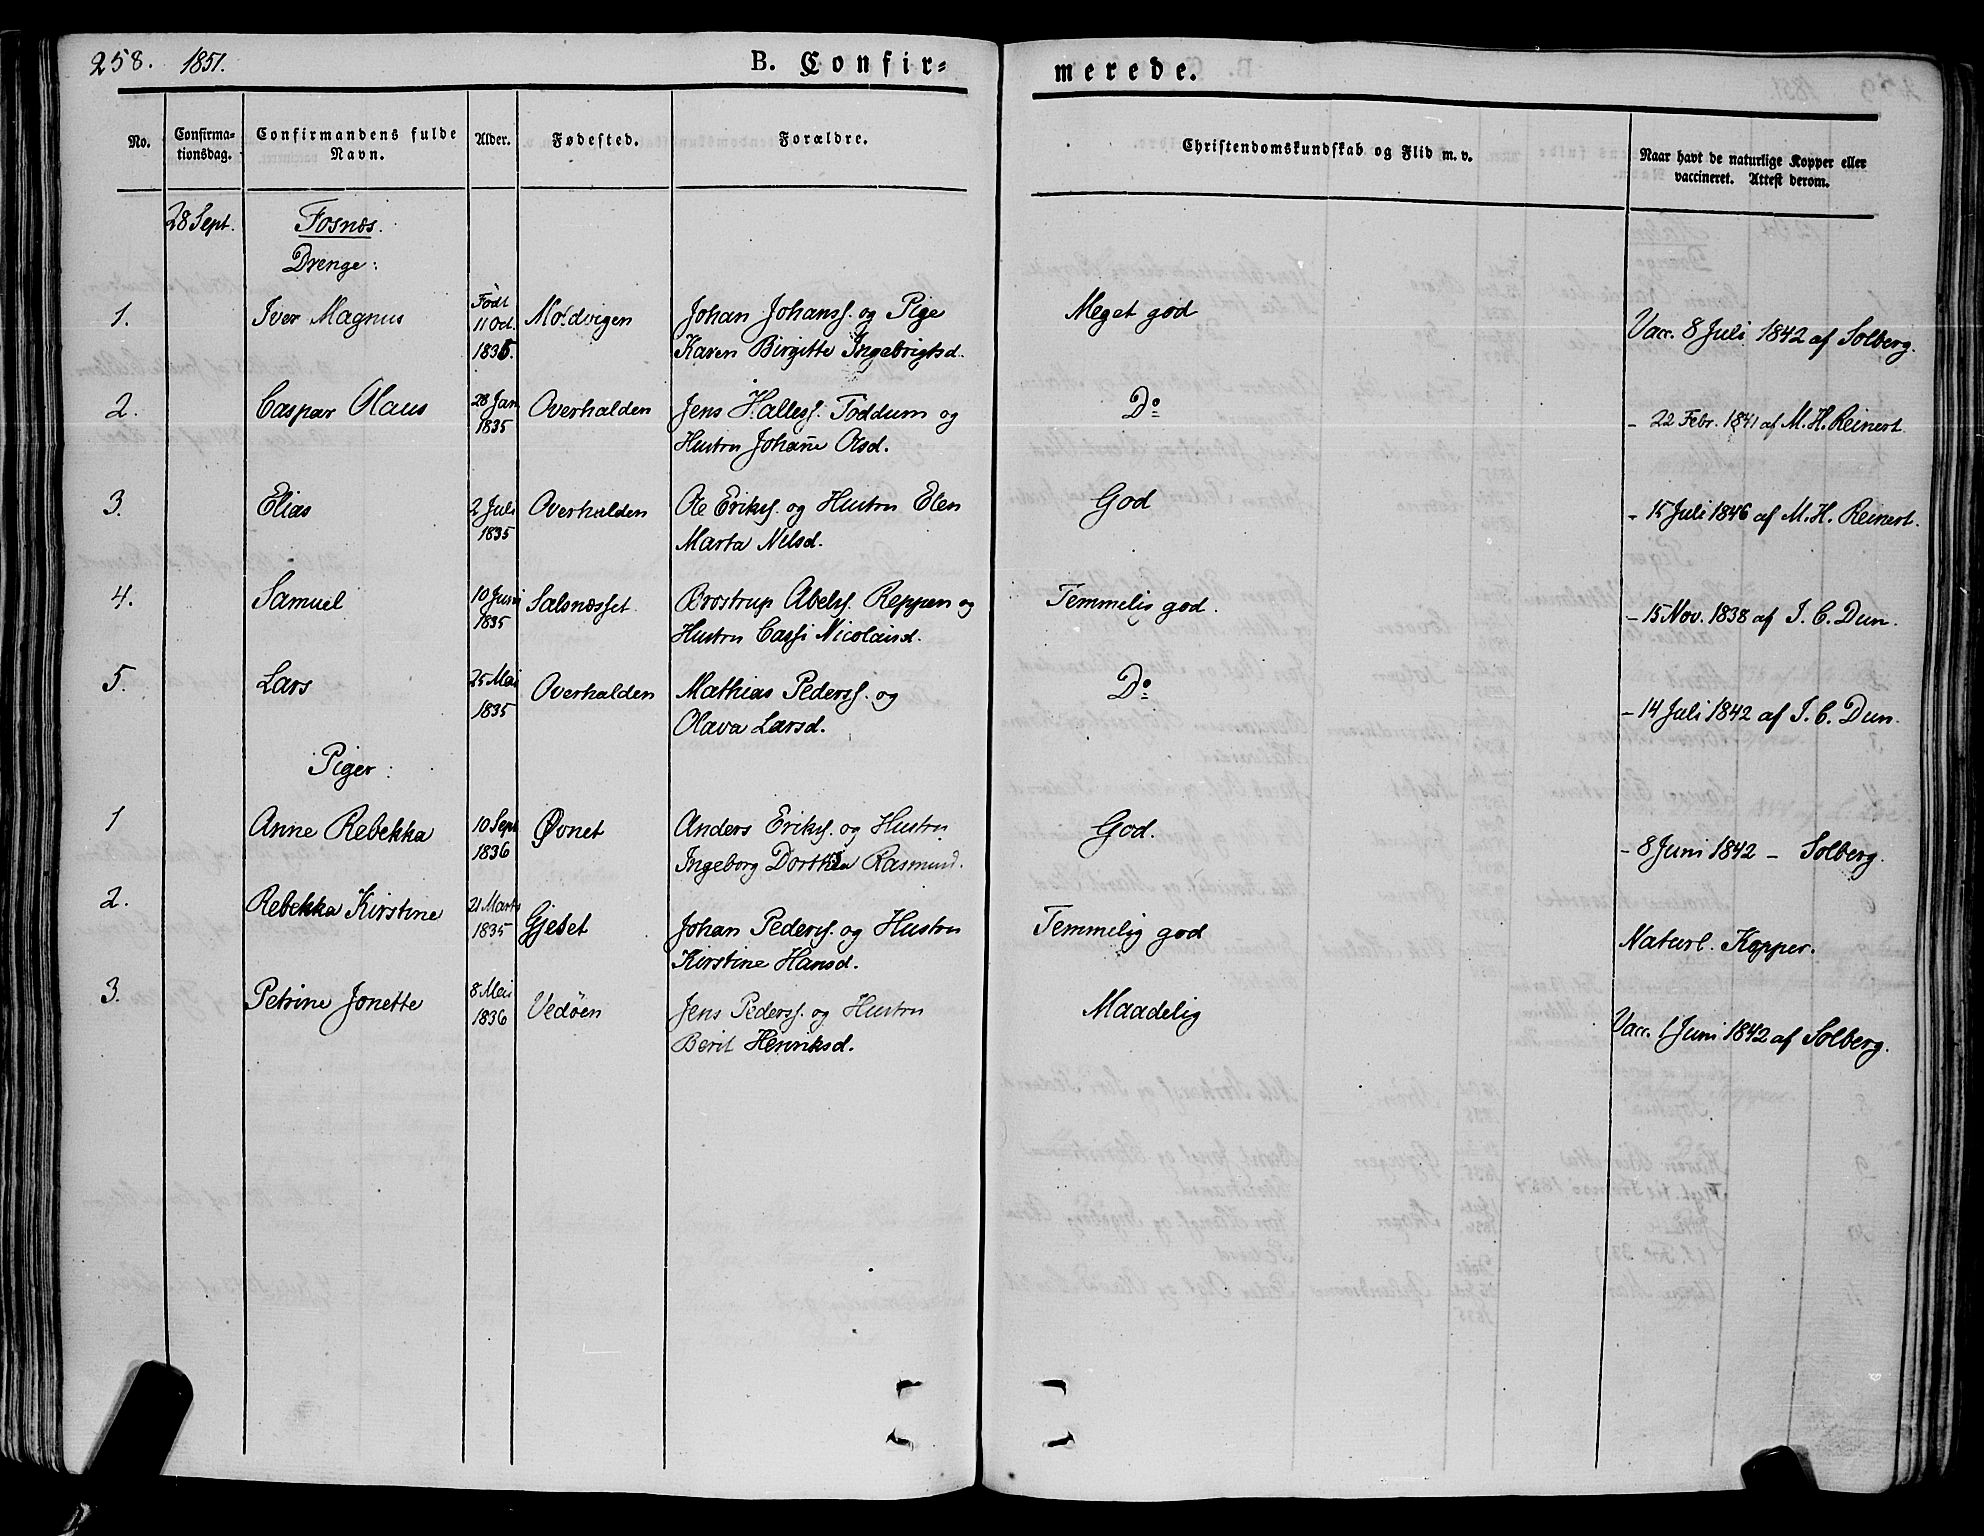 258. 1851. B. Confir= merede.
No. Confirma-tionsdag. Confirmandens fulde Navn. Alder. Fødested. Forældre. Christendomskundskab og Flid m. v. Naar havt de naturlige Kopper eller vaccineret. Attest derom.
28 Sept. Fosnæs.
Drenge:
1. Iver Magnus Født 11 Oct. 1835. Moldvigen Johan Johanss. og Pige Meget god Vacc. 8 Juli 1842 af Solberg.
Karen Birgitte Ingebrigtsd.
2. Caspar Olaus 28 Jan 1835 Overhalden Jens Halless. Foddum og Do - 22 Febr. 1841 af M. H. Reinert.
Hustru Johañe Olsd.
3. Elias 2 Juli 1835 Overhalden Ole Eriks. og Hustru Elen God - 15 Juli 1846 af M. H. Reinert.
Marta Nilsd.
4. Samuel 10 Juni 1835 Salsnæsset Brostrup Abels. Reppen og Temmelig god. - 15 Nov. 1838 af I. C. Dun.
Hustru Cassi Nicolaisd.
5. Lars 25 Mai 1835 Overhalden Mathias Pederss. og Do - 14 Juli 1842 af I. C. Dun.
Olava Larsd.
Piger:
1 Anne Rebekka 10 Sept 1836 Øvnet Anders Eriks. og Hustru God. - 8 Juni 1842 - Solberg.
Ingeborg Dorthea Rasmusd.
2. Rebekka Kirstine 21 Marts 1835 Gjetet Johan Pederss. og Hustru Temmelig god Naturl. Kopper.
Kirstine Hansd.
3. Petrine Jonette 8 Mai 1836 Vedøen Jens Pederss. og Hustru Maadelig Vacc. 1 Juni 1842 af Solberg.
Berit Henriksd.